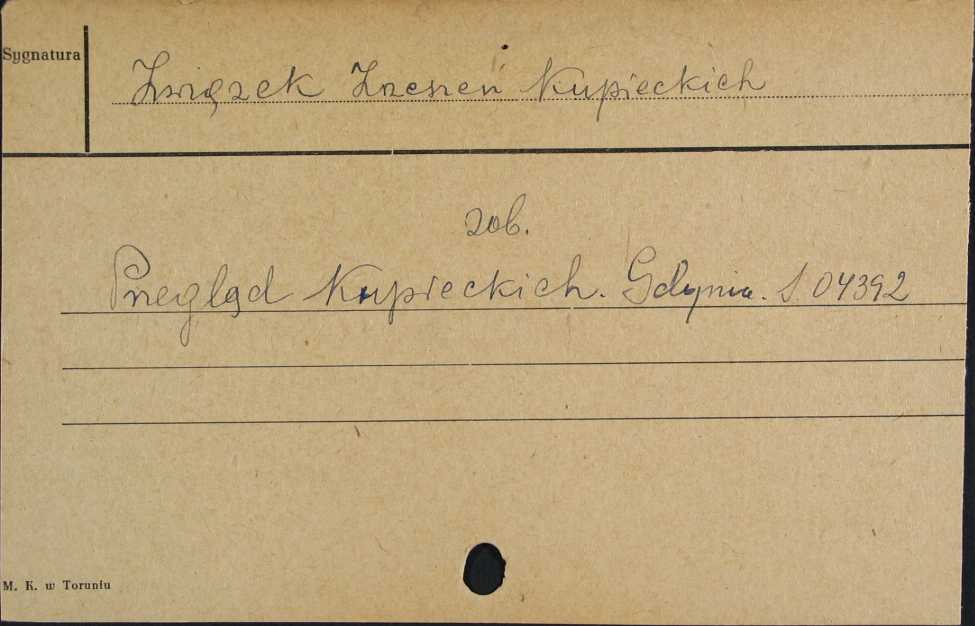 Sygnatura
Związek Zrzeszeń Kupieckich
zob.
Przegląd Kupieckich. Gdynia. S. 04392
M. K. w Toruniu